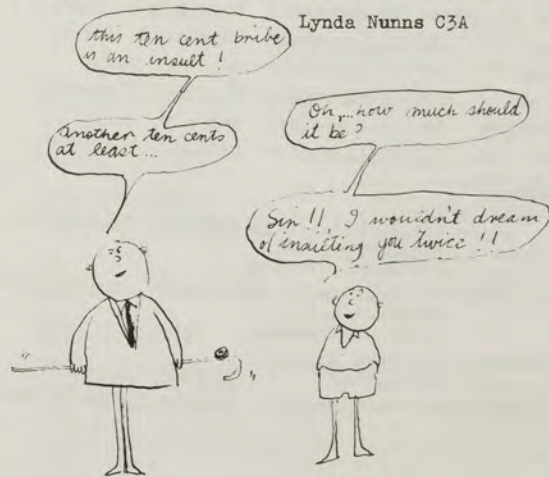 Lynda Nunns C3A
this ten cent bribe
is an insult !
Oh,...how much should
it be?
another ten cents
at least...
Sir !!, I wouldn't dream
of insulting you twice !!